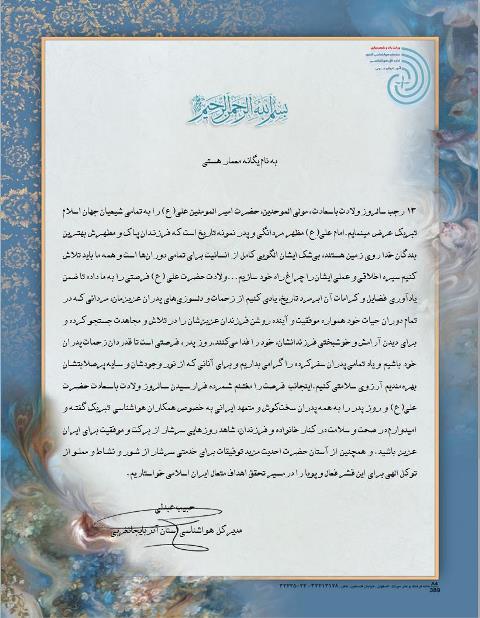 وزارت راه و شهرسازی
سازمان هواشناسی کشور
بسم الله الرحمن الرحیم
به نام یگانه معمار هستی
۱۳ رجب سالروز ولادت باسعادت، مولی الموحدین، حضرت امیر المومنین علی(ع) را به تمامی شیعیان جهان اسلام
تبریک عرض مینمایم. امام علی(ع) مظهر مردانگی و پدر نمونه تاریخ است که فرزندان پاک و مطهرش بهترین
بندگان خدا روی زمین هستند، بی‌شک ایشان الگویی کامل از انسانیت برای تمامی دوران‌ها است و همه ما باید تلاش
کنیم سیره اخلاقی و عملی ایشان را چراغ راه خود سازیم...ولادت حضرت علی(ع) فرصتی را به ما داده تا ضمن
یادآوری فضایل و کرامات آن ابرمرد تاریخ، یادی کنیم از زحمات و دلسوزی‌های پدران عزیزمان، مردانی که در
تمام دوران حیات خود همواره موفقیت و آینده روشن فرزندان عزیزشان را در تلاش و مجاهدت جستجو کرده و
برای دیدن آرامش و خوشبختی فرزندانشان، خود را فدا می‌کنند.روز پدر، فرصتی است تا قدردان زحمات پدران
خود باشیم و یاد تمامی پدران سفرکرده را گرامی بداریم و برای آنانی که از نور وجودشان و سایه پرصلابتشان
بهره‌مندیم آرزوی سلامتی کنیم. اینجانب فرصت را مغتنم شمرده فرارسیدن سالروز ولادت باسعادت حضرت
علی(ع) و روز پدر را به همه پدران سخت‌کوش و متعهد ایرانی به خصوص همکاران هواشناسی تبریک گفته و
امیدوارم در صحت و سلامت در کنار خانواده و فرزندان، شاهد روزهایی سرشار از برکت و موفقیت برای ایران
عزیز باشید. و همچنین از آستان حضرت احدیت مزید توفیقات برای خدمتی سرشار از شور و نشاط و مملو از
توکل الهی برای این قشر فعال و پویا را در مسیر تحقق اهداف متعال ایران اسلامی خواستاریم.
حبیب عبدلی
مدیر کل هواشناسی استان آذربایجانغربی
A4
389